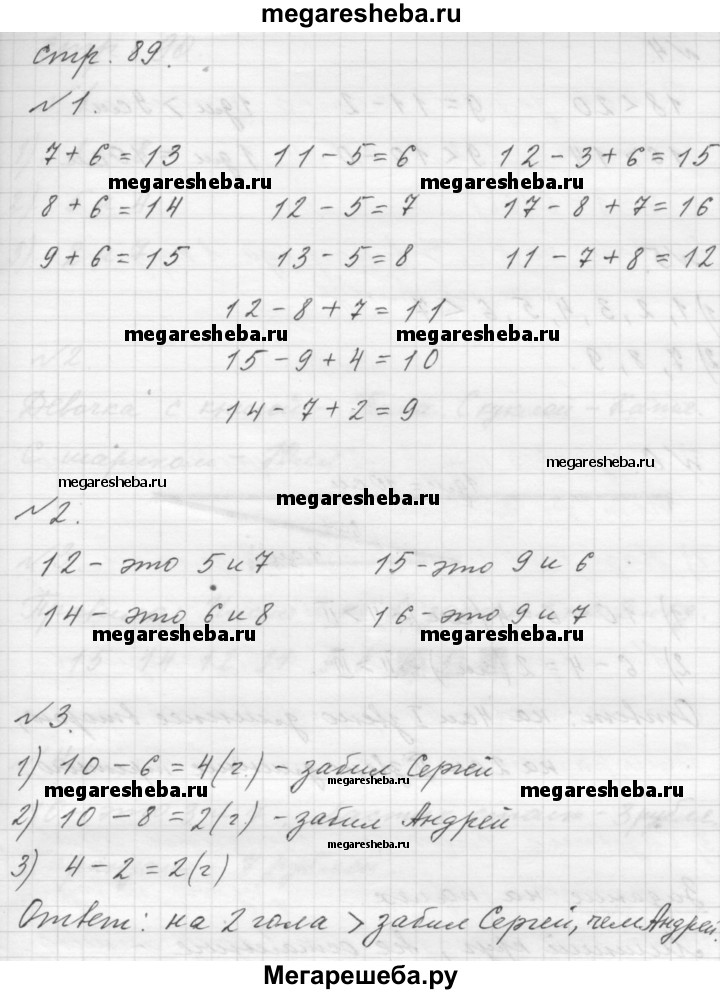 megaresheba.ru
стр. 89.
№1.
7 + 6 = 13 11 - 5 = 6 12 - 3 + 6 = 15
megaresheba.ru megaresheba.ru
8 + 6 = 14 12 - 5 = 7 17 - 8 + 7 = 16
9 + 6 = 15 13 - 5 = 8 11 - 7 + 8 = 12
12 - 8 + 7 = 11
megaresheba.ru megaresheba.ru
15 - 9 + 4 = 10
14 - 7 + 2 = 9
megaresheba.ru
megaresheba.ru megaresheba.ru
№2.
12 - это 5 и 7 15 - это 9 и 6
14 - это 6 и 8 16 - это 9 и 7
megaresheba.ru megaresheba.ru
№3.
1) 10 - 6 = 4 (г) - забил Сергей
megaresheba.ru megaresheba.ru megaresheba.ru
2) 10 - 8 = 2 (г) - забил Андрей
megaresheba.ru
3) 4 - 2 = 2 (г)
Ответ: на 2 гола > забил Сергей, чем Андрей.
Мегарешеба.ру